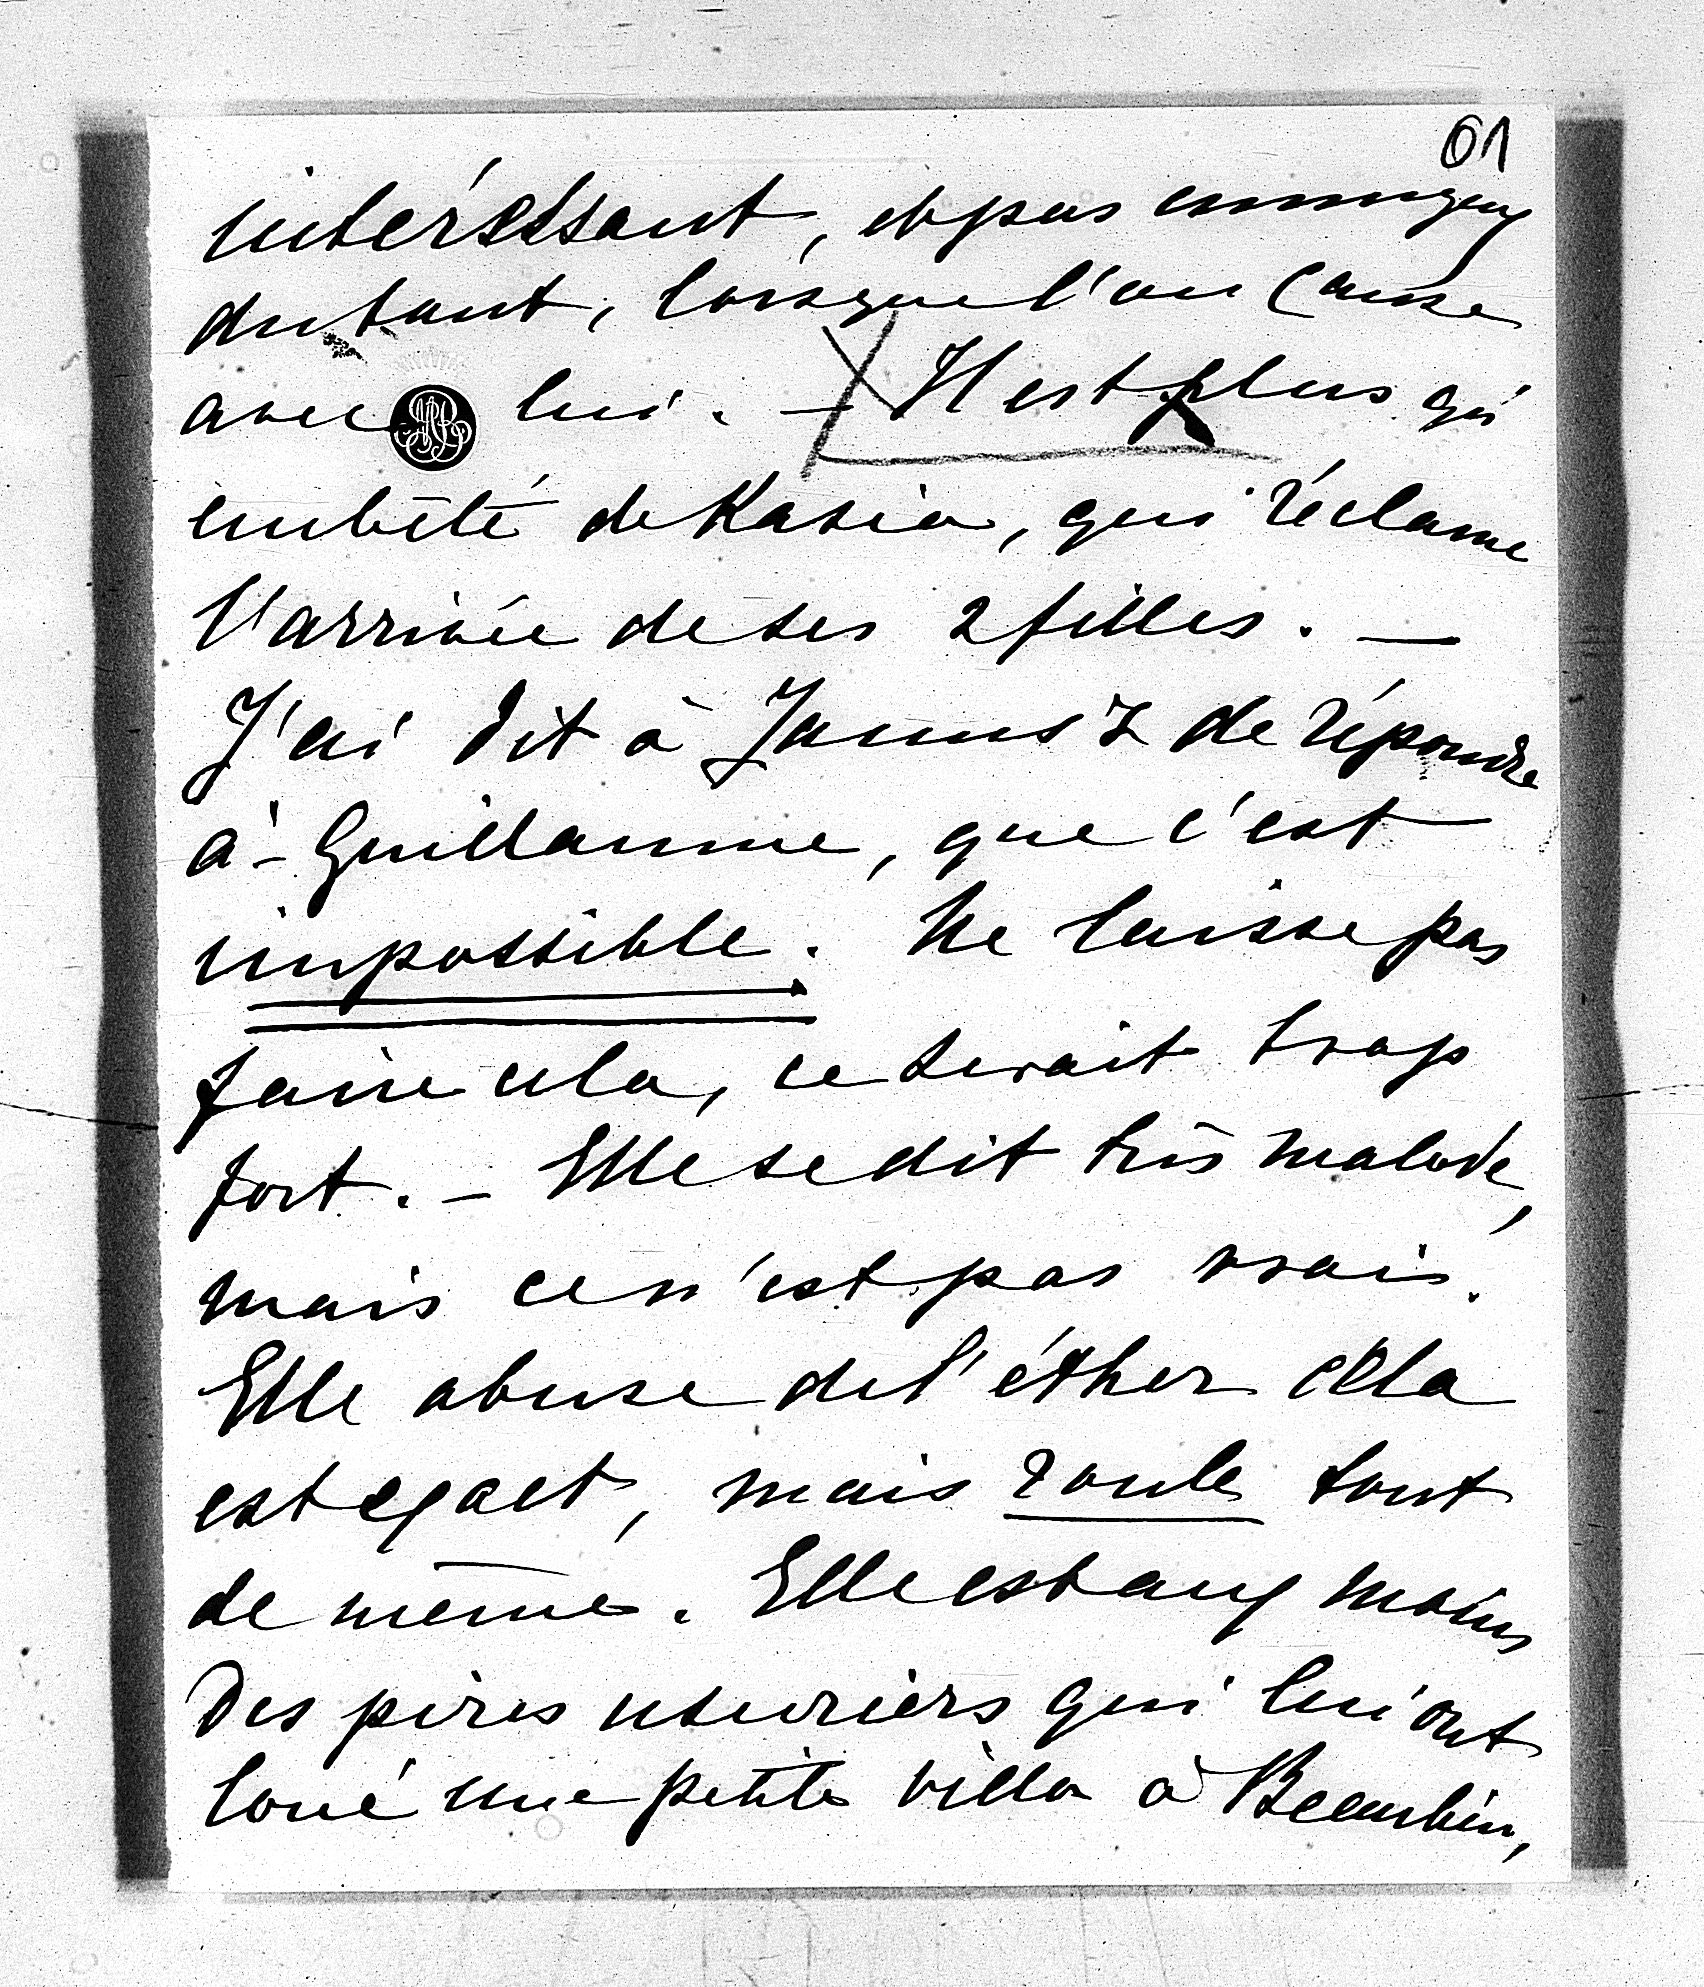 61
intéressant, et pas ennuyeux
du tout, lorsque l'on cause
avec lui. — Il est plus qu'
embêté de Kasia, qui réclame
l'arrivée de ses 2 filles. —
J'ai dit à Janusz de répondre
à - Guillaume, que c'est
impossible. Ne laisse pas
faire cela, ce serait trop
fort. — Elle se dit très malade,
mais ce n'est pas vrai.
Elle abuse de l'éther cela
est exact, mais roule tout
de même. Elle est aux mains
des pires usuriers qui lui ont
loué une petite villa à